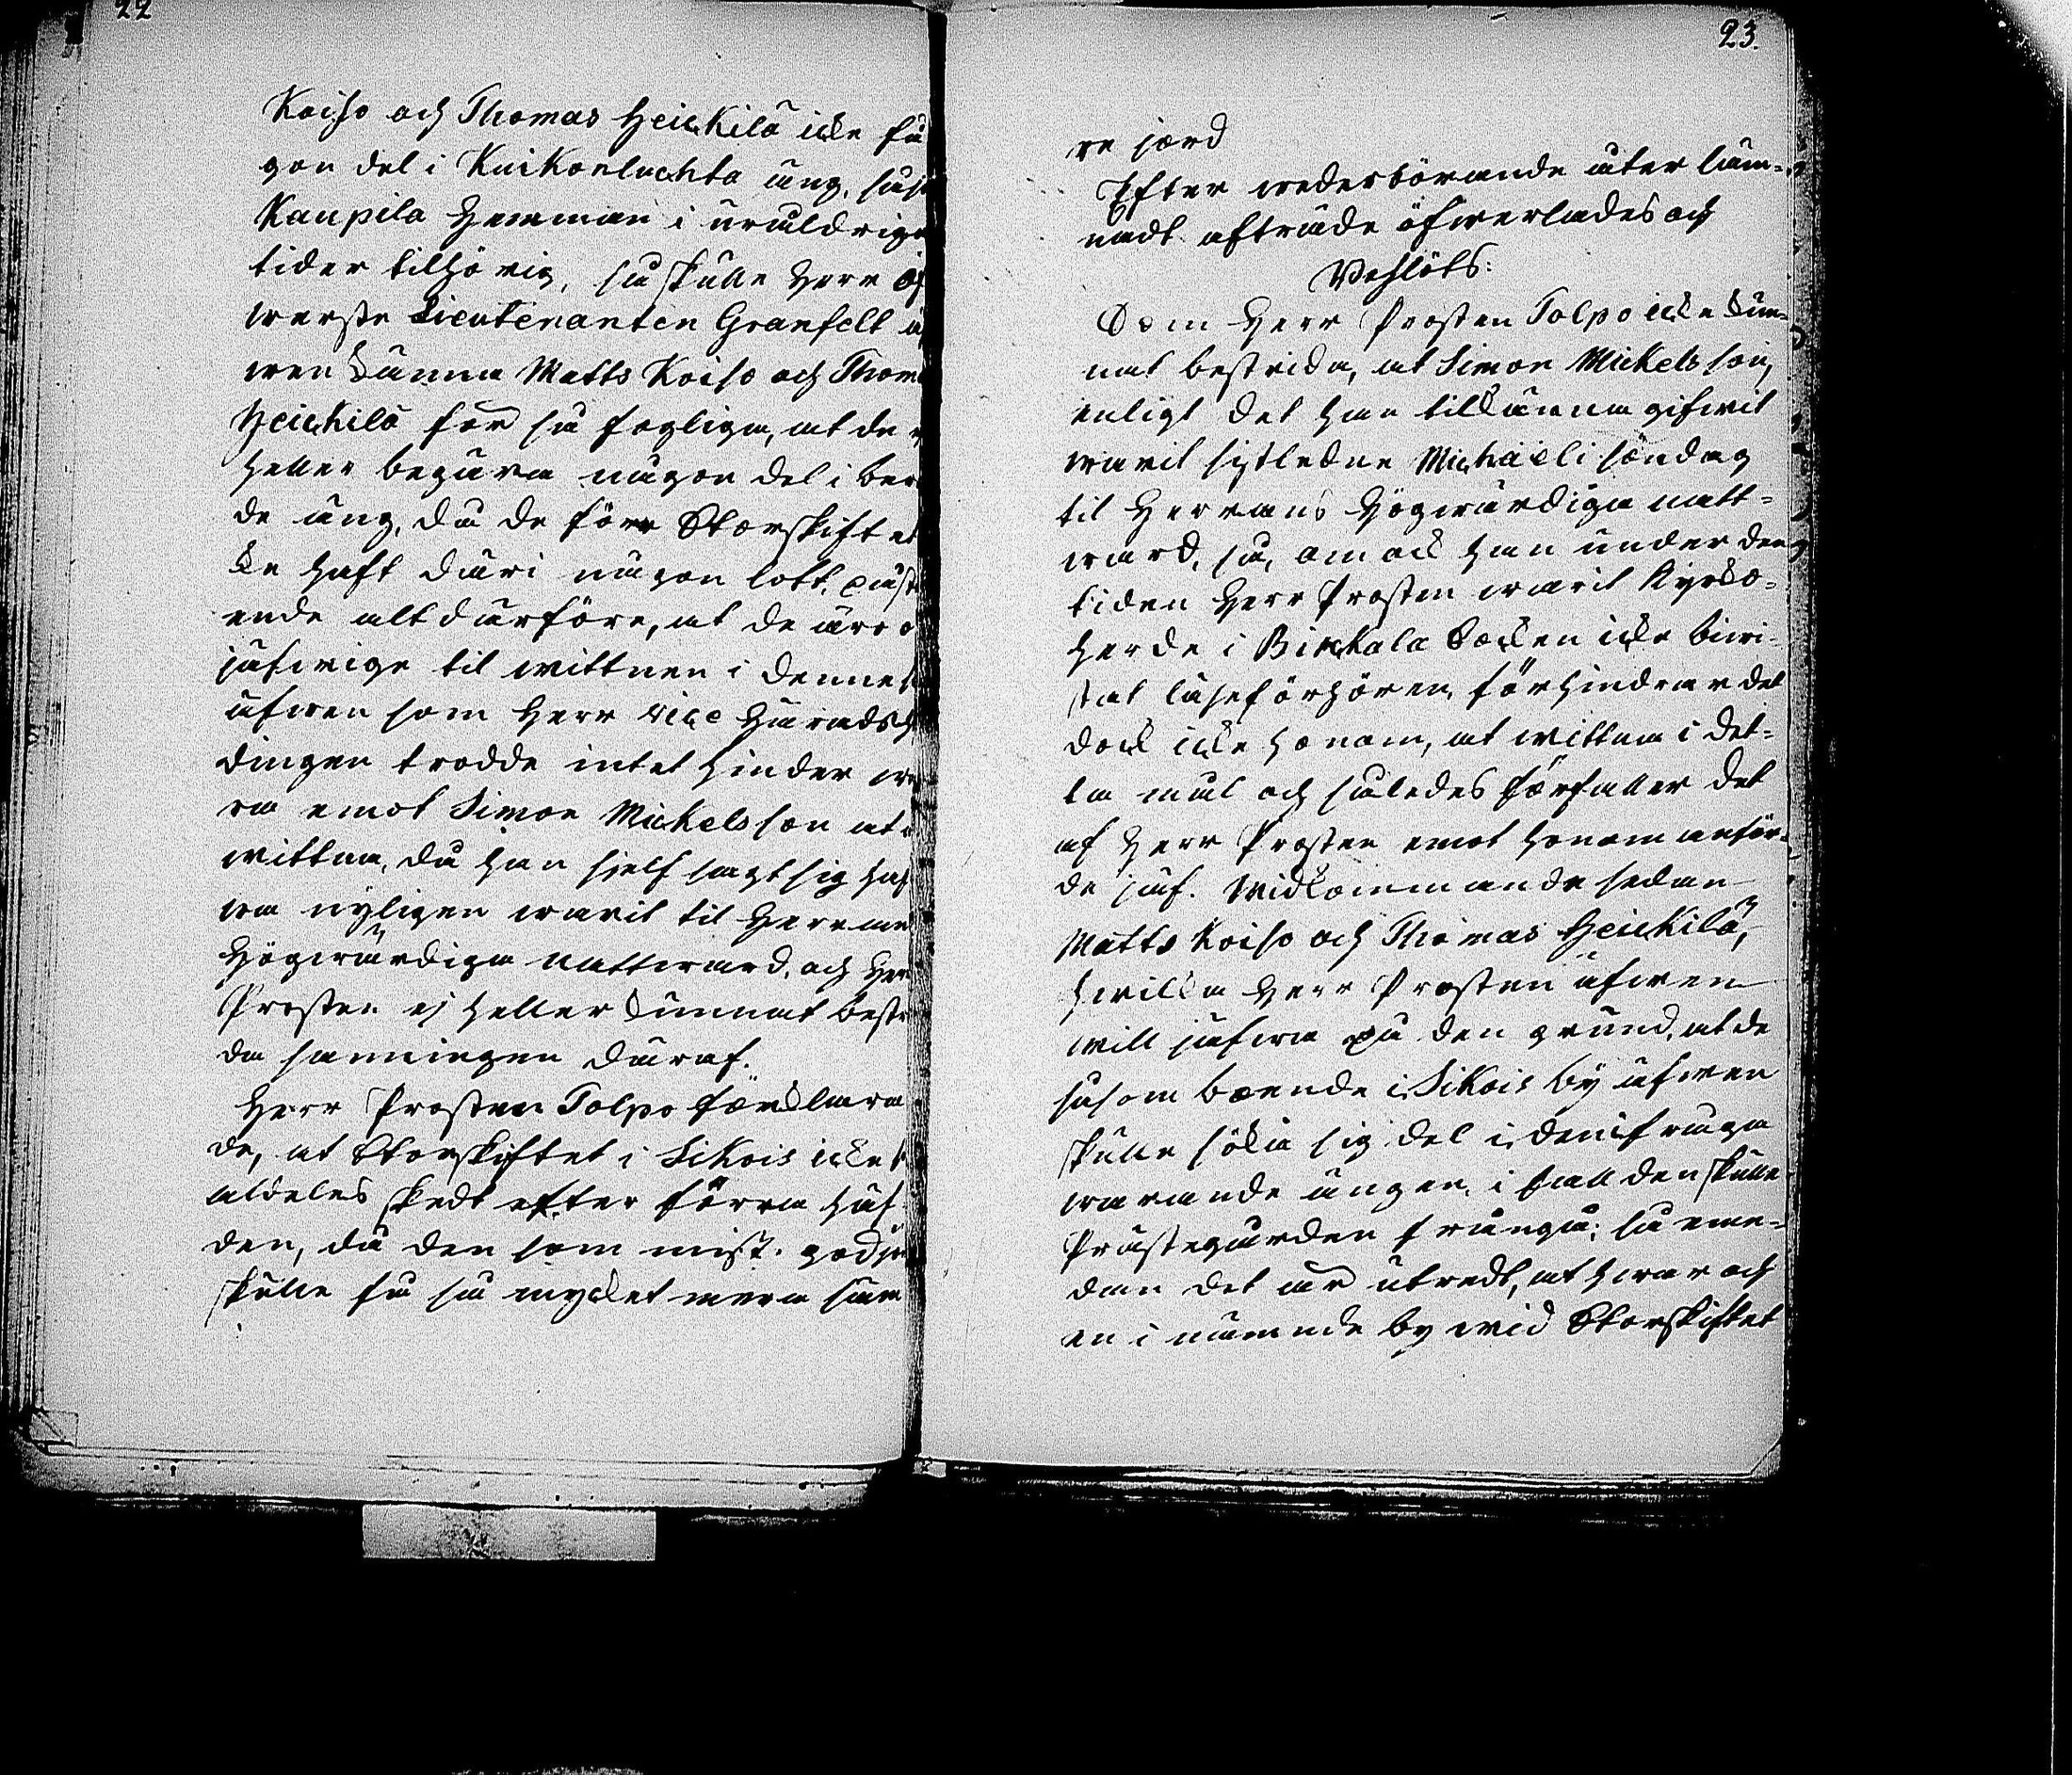 22
Koiso och Thomas Heickilä icke få
gon del i Kuikonluchta äng, såso
Kaupila Hemman i uråldriga
tider tilhörig, så skulle Herr Öf
werste Lieutenanten Granfelt ä
wen känna Matts Koiso och Thoma
Heickilä för så foglige, at de e
heller begära någon del i ber
de äng, då de förr Storskiftet
ke haft däri någon lott, påst
ende altdärföre, at de äro o
jäfwige til wittnen i denne s
äfwen som Herr Vice Häradsh
dingen trodde intet hinder wa
ra emot Simon Mickelsson at
wittna, då han sjelf sagt sig haf
wa nyligen warit til Herrans
Högwärdiga nattward, och Herr
Prosten ej heller kunnat bestri
da sanningen däraf.
Herr Prosten Tolpo förklara
de, at Storskiftet i Sikois icke
aldeles skedt efter förra häf
den, då den som mist. god jor
skulle få så mycket mera säm
23.
re jord
Efter wederbörande åter läm-
nadt afträde öfwerlades och
Beslöts:
Som Herr Prosten Tolpo icke kun-
nat bestrida, at Simon Mickelsson,
enligt det han tillkänna gifwit
warit sistledne Michaeli söndag
til Herrans Högwärdiga natt-
ward, så, om ock han under den
tiden Herr Prosten warit Kyrko-
herde i Birckala Socken icke biwi-
stat läseförhören, förhindrar det
dock icke honom, at wittna i det-
ta mål och således förfaller det
af Herr Prosten emot honom anför-
de jäf. Widkommande sedan
Matts Koiso och Thomas Heickilä,
hwilka Herr Prosten äfwen
will jäfwa på den grund, at de
såsom boende i Sikois by äfwen
skulle sökia sig del i den ifråga
warande ängen, i fall den skulle
Prästegården frångå; så eme-
dan det är utredt, at hwar och
en i nämnde by wid Storskiftet